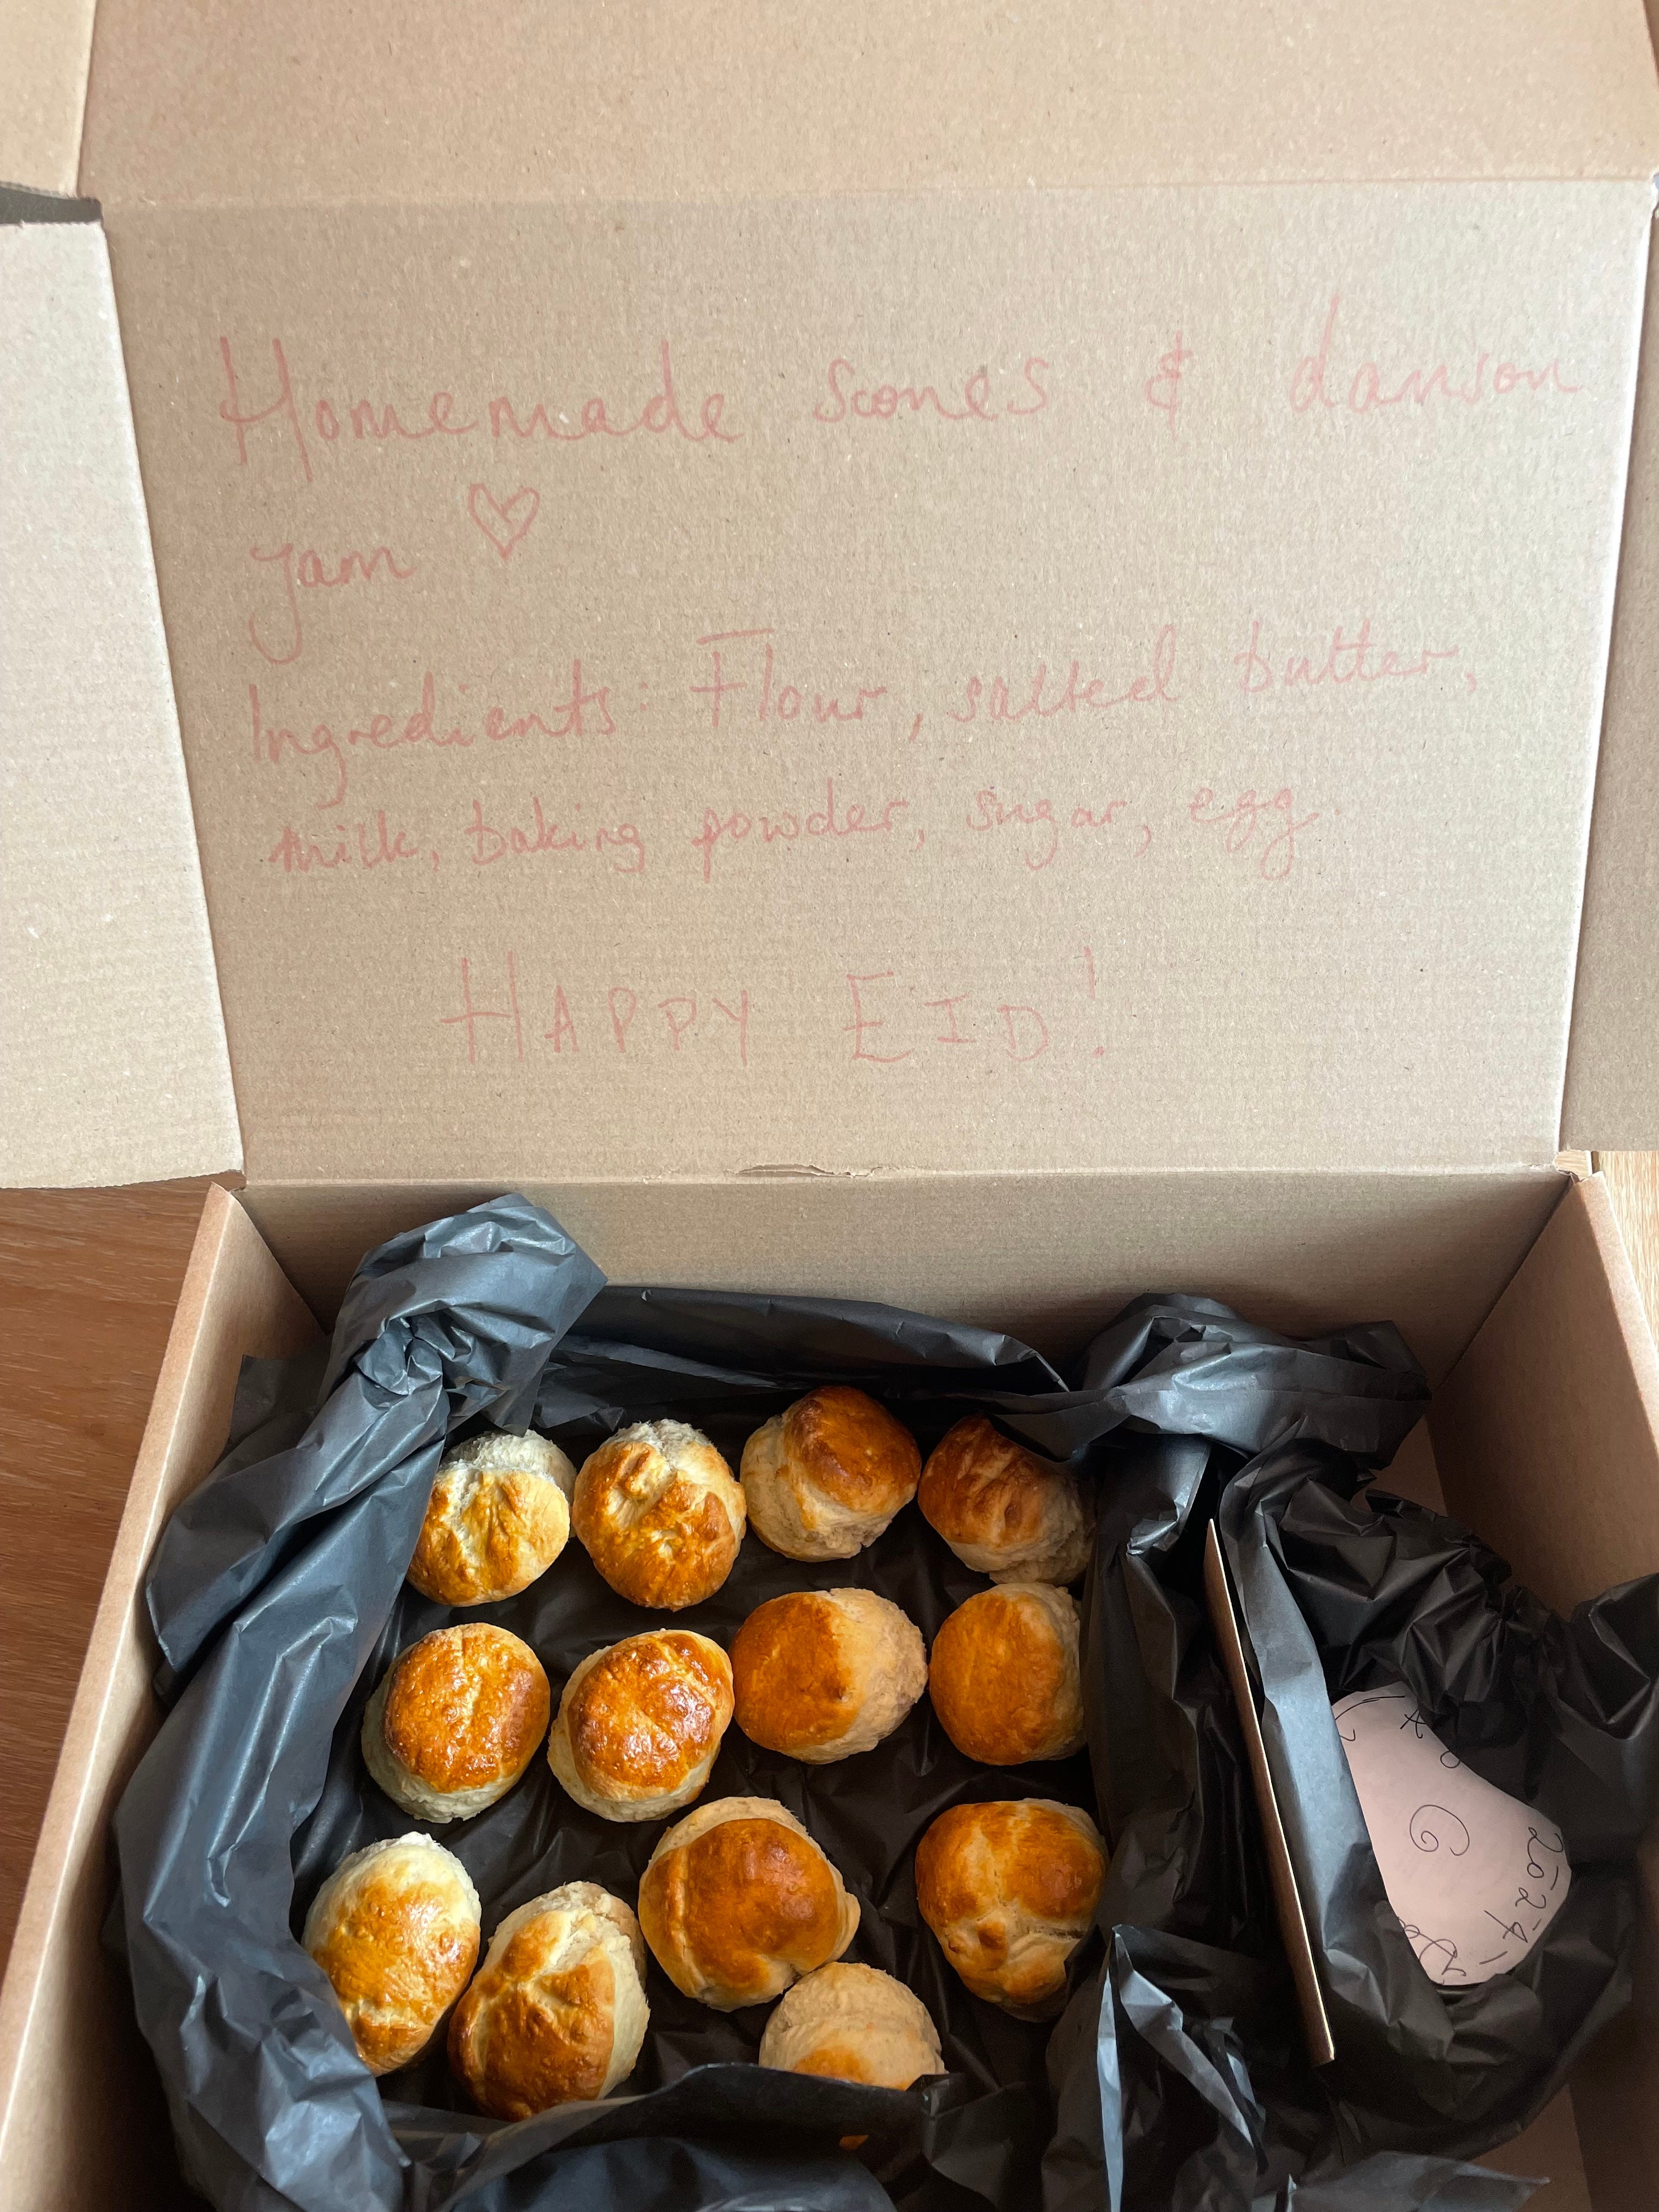 Homemade scones & damson
jam ♡
Ingredients: Flour, salted butter,
milk, baking powder, sugar, egg.
HAPPY EID!
2024